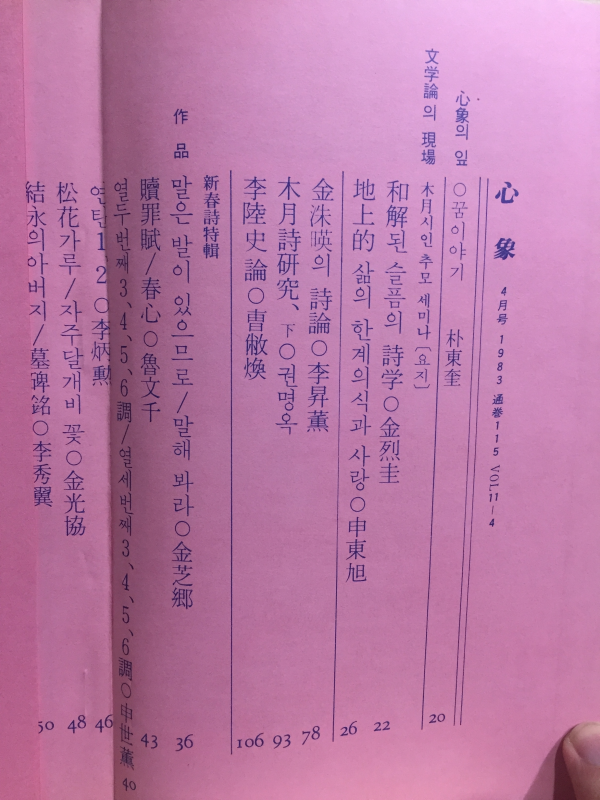 心象 4月号 1983 通巻115 VOL.11－4
心象의 잎
○꿈이야기 朴東奎
20
文学論의 現場
木月시인 추모 세미나〔요지〕
和解된 슬픔의 詩学○金烈圭 22
地上的 삶의 한계의식과 사랑○申東旭 26
金洙暎의 詩論○李昇薰 78
木月詩研究、下○권명옥 93
李陸史論○曺敝煥 106
新春詩特輯
作品
말은 발이 있으므로/말해 봐라○金芝郷 36
贖罪賦/春心○魯文千 43
열두번째 3、4、5、6調/열세번째 3、4、5、6調○申世薰 40
연탄1、2○李炳勲 46
松花가루/자주달개비 꽃○金光協 48
結永의아버지/墓碑銘○李秀翼 50